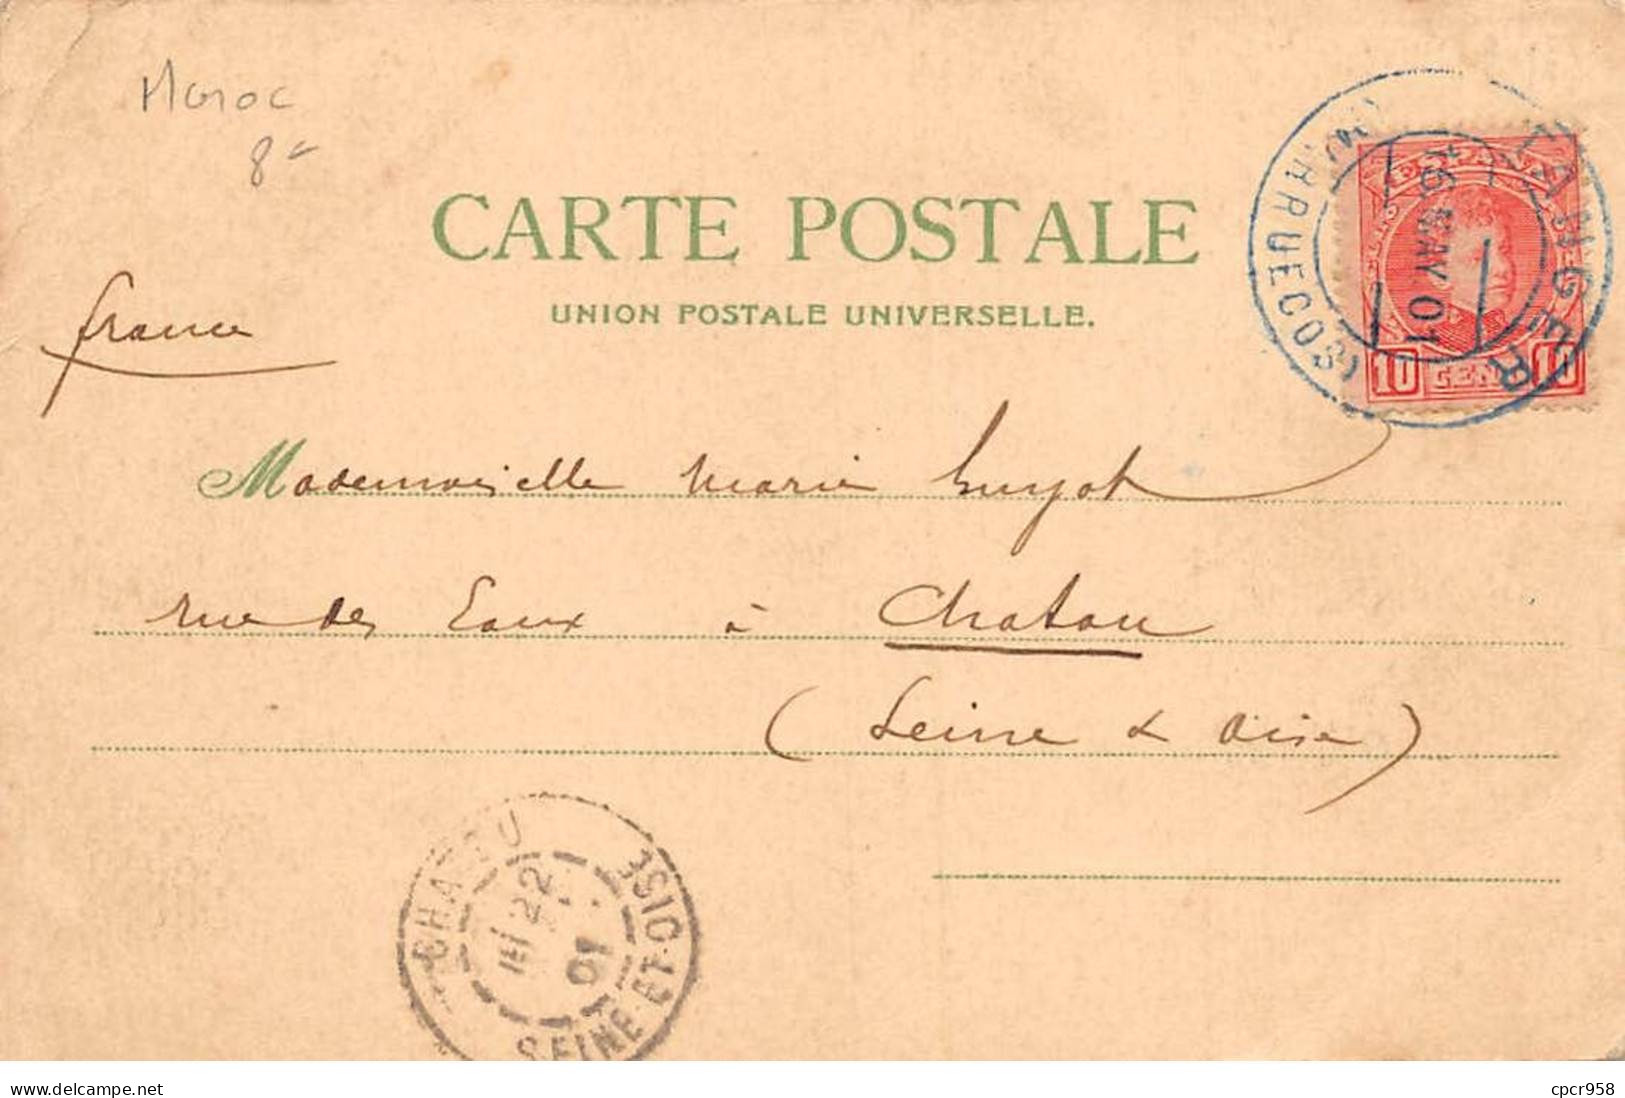 Maroc
8-
CARTE POSTALE
UNION POSTALE UNIVERSELLE.
france
TANGER
(MARRUECOS)
16 MAY 01
ESPAÑA
10 CENT 10
Mademoiselle Marie Guyot
rue des Eaux à Chatou
(Seine & Oise)
CHATOU
22
01
SEINE-ET-OISE
www.delcampe.net
cpcr958